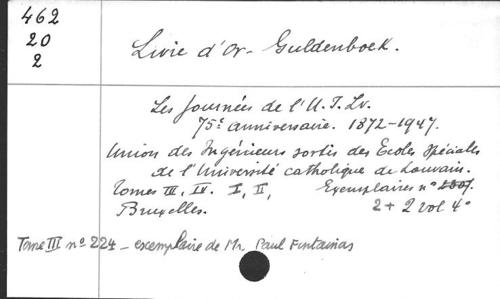 462
20
2
Livre d'Or - Guldenboek.
Les Journées de l'U.I.Lv.
75e anniversaire. 1872-1947.
Union des Ingénieurs sortis des Ecoles spéciales
de l'Université catholique de Louvain.
Tomes III, IV. I, II, Exemplaires n°
Bruxelles. 2 + 2 vol 4°
Tome III n° 224 - exemplaire de Mr Paul Fontainas